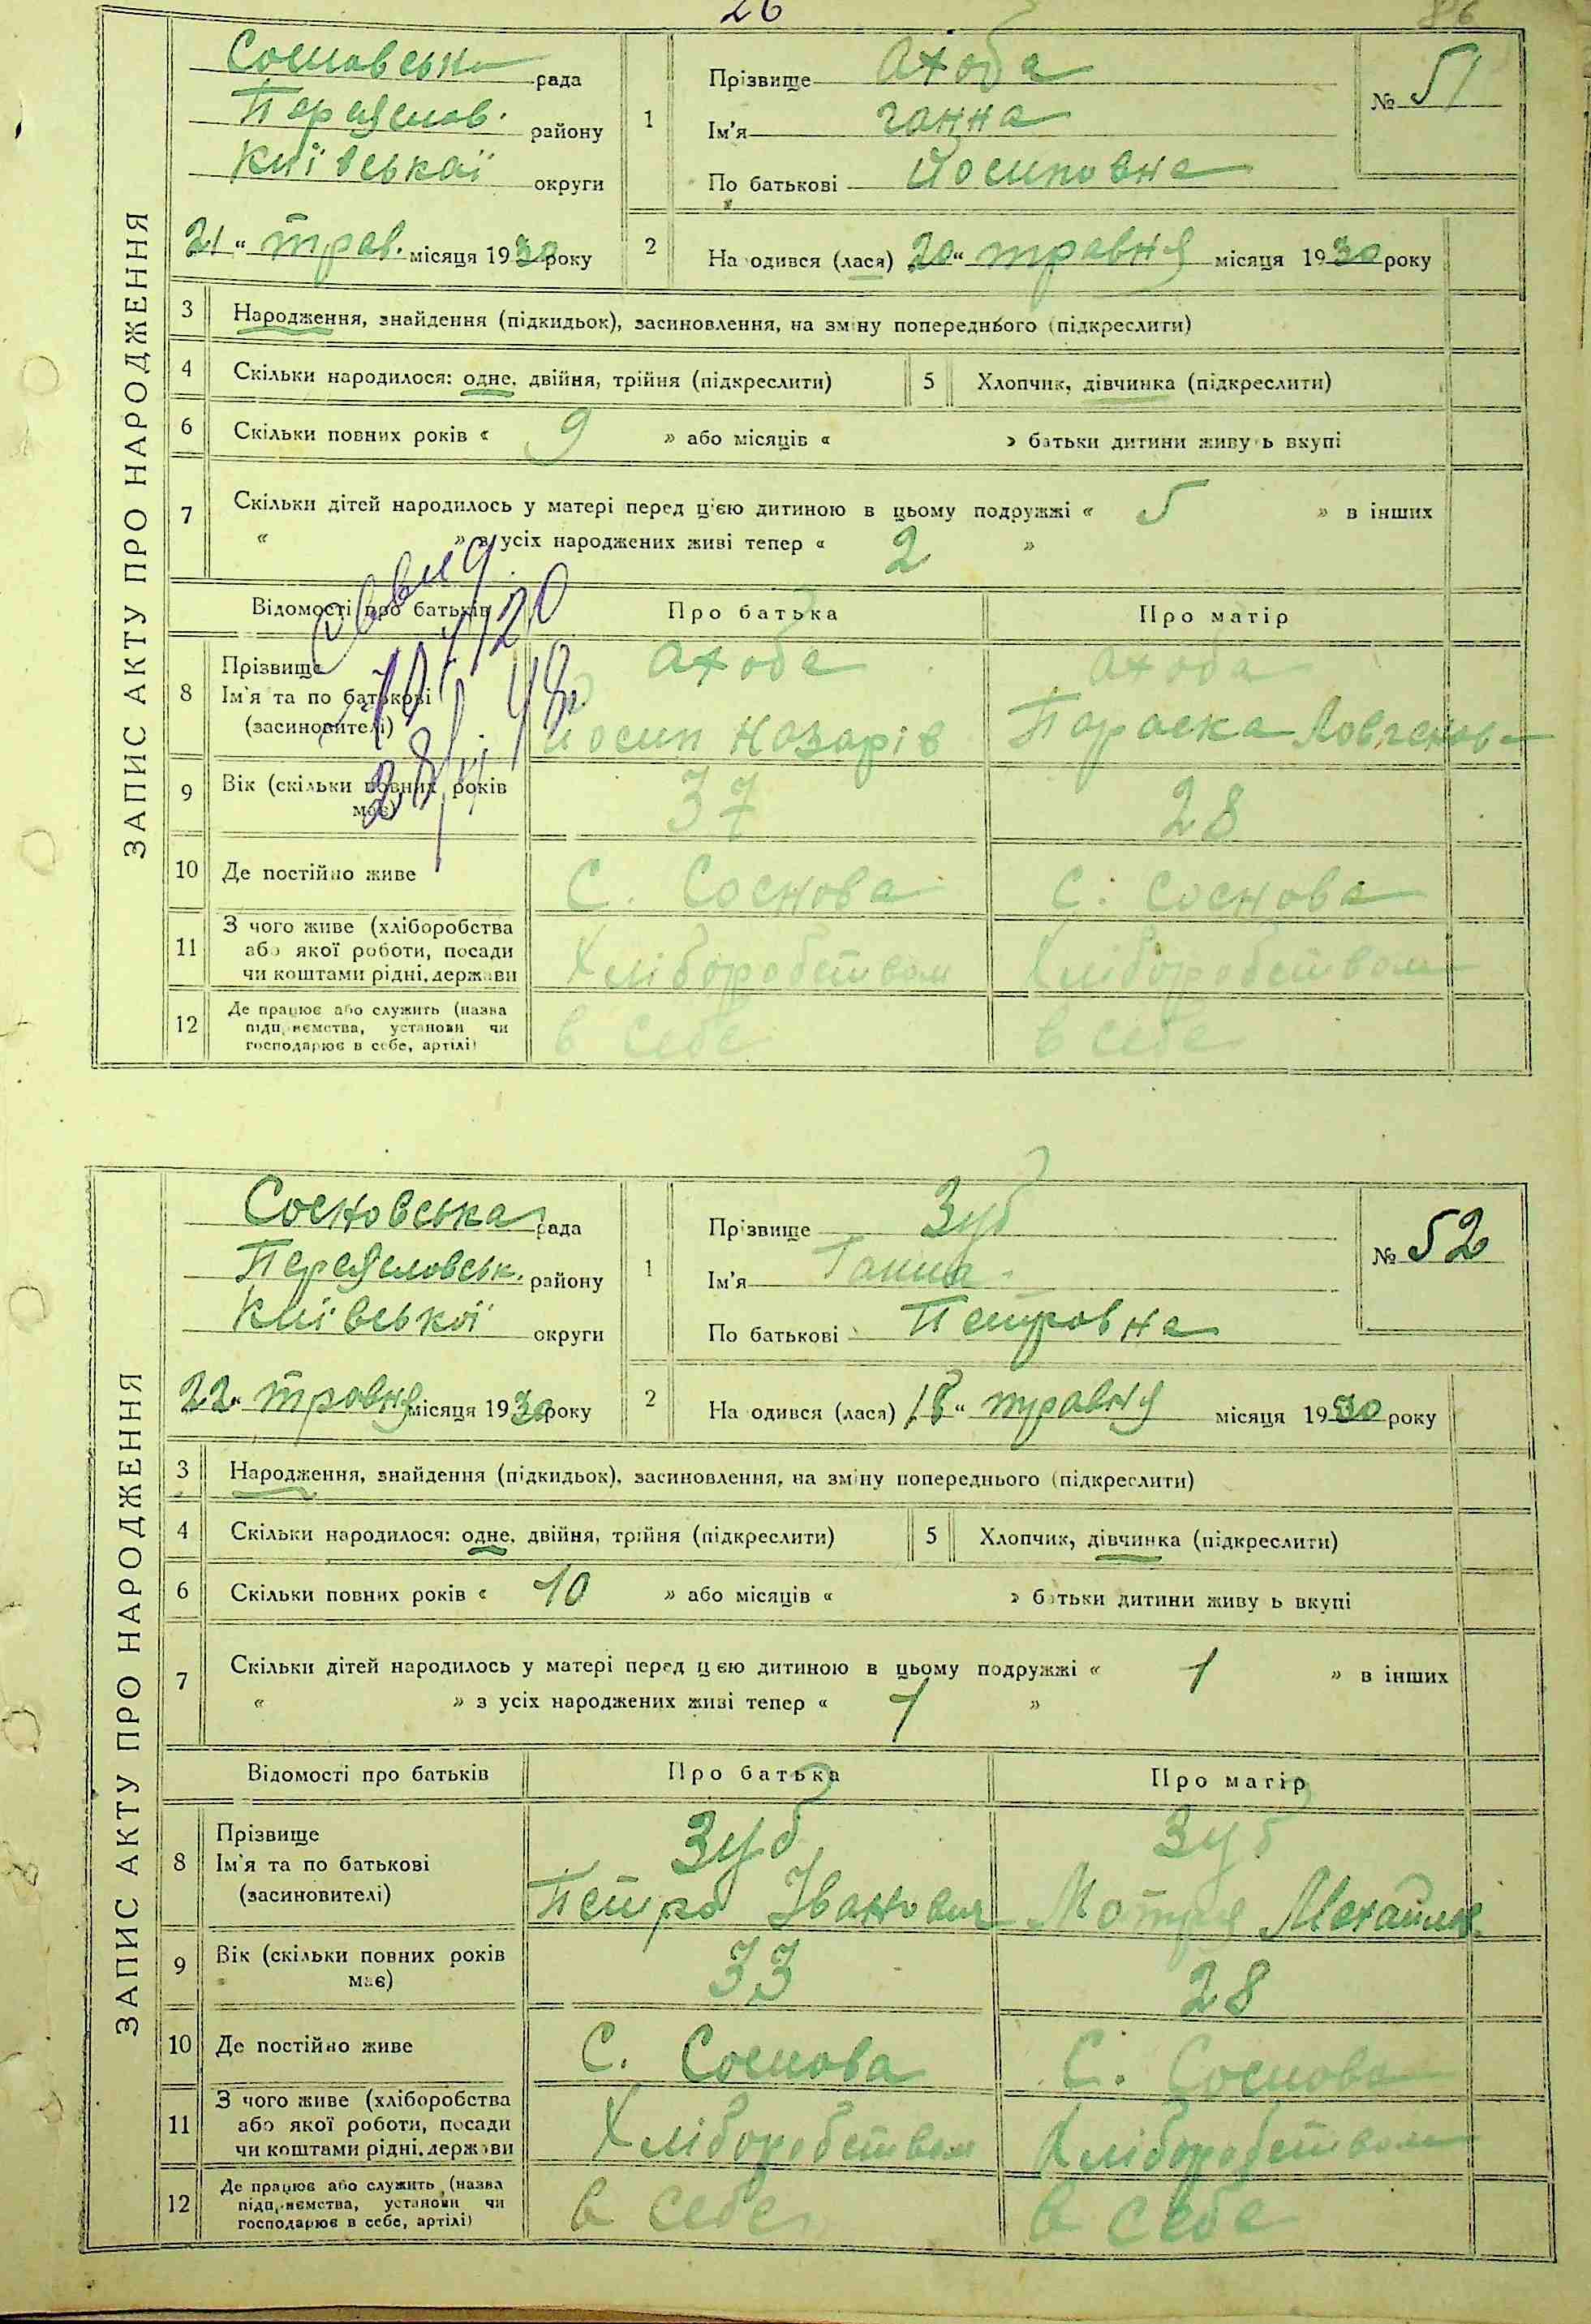 26
86
ЗАПИС АКТУ ПРО НАРОДЖЕННЯ
Сосновська рада
Переяслов. району
Київської округи
21 " трав. місяця 1930 року
1
Прізвище Ахоба
Ім'я Ганна
По батькові Йосиповна
№ 51
2 На одився (лася) 20 " травня місяця 1930 року
3 Народження, знайдення (підкидьок), засиновлення, на зміну попереднього (підкреслити)
4 Скільки народилося: одне, двійня, трійня (підкреслити) 5 Хлопчик, дівчинка (підкреслити)
6 Скільки повних років « 9 » або місяців « » батьки дитини живу ь вкупі
7 Скільки дітей народилось у матері перед цією дитиною в цьому подружжі « 5 » в інших
« » з усіх народжених живі тепер « 2 »
Відомості про батьків Про батька Про матір
8 Прізвище Ахоба Ахоба
Ім'я та по батькові Йосип Назарів Параска
(засиновителі)
9 Вік (скільки повних років має) 37 28
10 Де постійно живе С. Соснова С. Соснова
11 З чого живе (хліборобства
або якої роботи, посади Хліборобством Хліборобством
чи коштами рідні, держави
12 Де працює або служить (назва
підприємства, установи чи в себе в себе
господарює в себе, артілі)
ЗАПИС АКТУ ПРО НАРОДЖЕННЯ
Сосновська рада
Переяславськ. району
Київської округи
22 " травня місяця 1930 року
1
Прізвище Зуб
Ім'я Ганна
По батькові Петровна
№ 52
2 На одився (лася) 18 " травня місяця 1930 року
3 Народження, знайдення (підкидьок), засиновлення, на зміну попереднього (підкреслити)
4 Скільки народилося: одне, двійня, трійня (підкреслити) 5 Хлопчик, дівчинка (підкреслити)
6 Скільки повних років « 10 » або місяців « » батьки дитини живу ь вкупі
7 Скільки дітей народилось у матері перед цією дитиною в цьому подружжі « 1 » в інших
« » з усіх народжених живі тепер « 1 »
Відомості про батьків Про батька Про матір
8 Прізвище Зуб Зуб
Ім'я та по батькові Петро Іванович Мотря
(засиновителі)
9 Вік (скільки повних років має) 33 28
10 Де постійно живе С. Соснова С. Соснова
11 З чого живе (хліборобства
або якої роботи, посади Хліборобством Хліборобством
чи коштами рідні, держави
12 Де працює або служить (назва
підприємства, установи чи в себе в себе
господарює в себе, артілі)